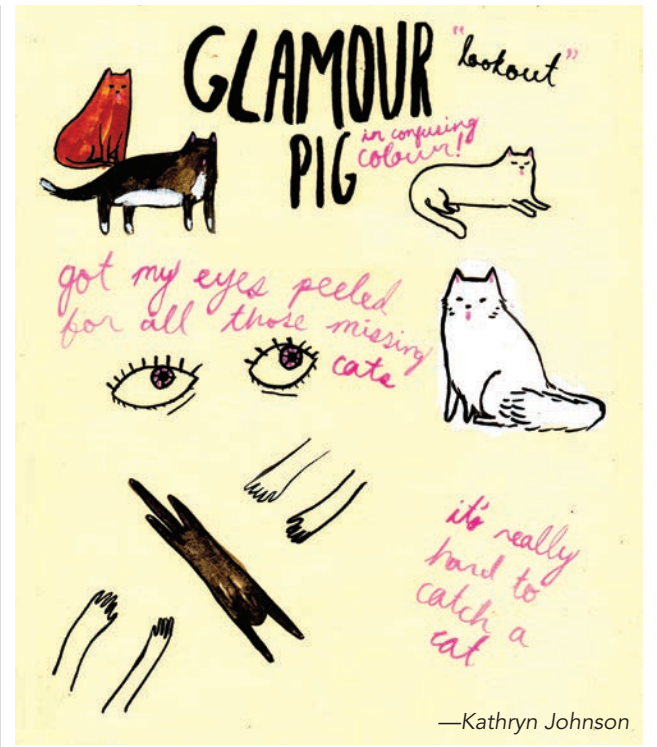 GLAMOUR
"lookout"
PIG
in confusing
colour!
got my eyes peeled
for all those missing
cats
it's really
hard to
catch a
cat
—Kathryn Johnson